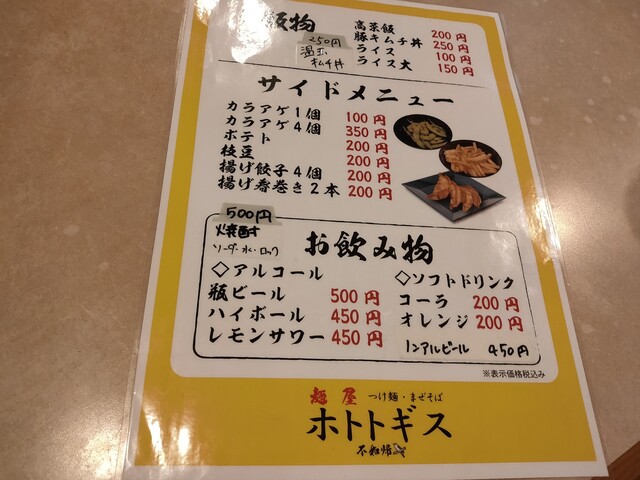 飯物
高菜飯 200円
豚キムチ丼 250円
ライス 100円
ライス大 150円
250円
温玉
キムチ丼
サイドメニュー
カラアゲ1個 100円
カラアゲ4個 350円
ポテト 200円
枝豆 200円
揚げ餃子4個 200円
揚げ春巻き2本 200円
500円
焼酎
ソーダ・水・ロック
お飲み物
◇アルコール
瓶ビール 500円
ハイボール 450円
レモンサワー 450円
◇ソフトドリンク
コーラ 200円
オレンジ 200円
ノンアルビール 450円
※表示価格税込み
麺屋 つけ麺・まぜそば
ホトトギス
不如帰